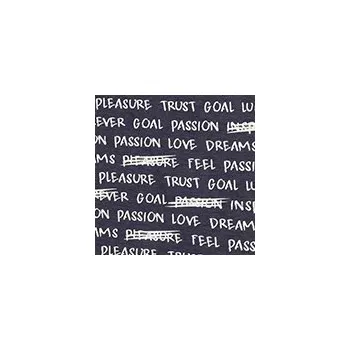 PLEASURE TRUST GOAL LU
EVER GOAL PASSION INSP
ON PASSION LOVE DREAMS
AMS PLEASURE FEEL PASSI
PLEASURE TRUST GOAL LU
EVER GOAL PASSION INSP
ON PASSION LOVE DREAMS
AMS PLEASURE FEEL PASS
PLEASURE TRUST GOAL